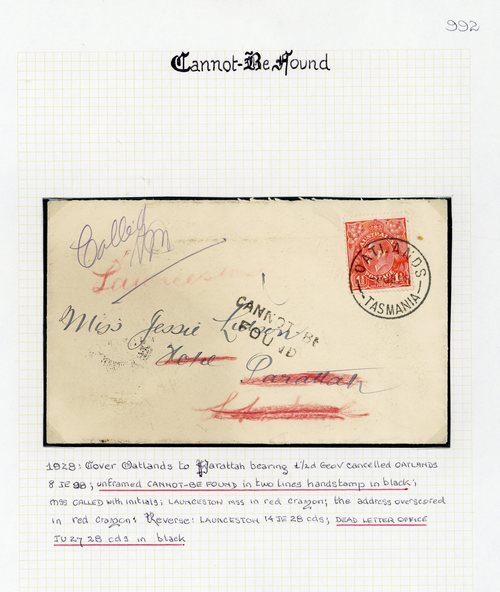 992
Cannot-Be Found
Called
AUSTRALIA
OATLANDS
TASMANIA
Launceston
CANNOT BE
FOUND
Miss Jessie
Parattah
1928: Cover Oatlands to Parattah bearing 1½d GeoV cancelled OATLANDS
8 JE 98; unframed CANNOT-BE FOUND in two lines handstamp in black;
mss CALLED with initials; LAUNCESTON mss in red crayon; the address overscored
in red crayon: Reverse: LAUNCESTON 14 JE 28 cds; DEAD LETTER OFFICE
JU 27 28 cds in black